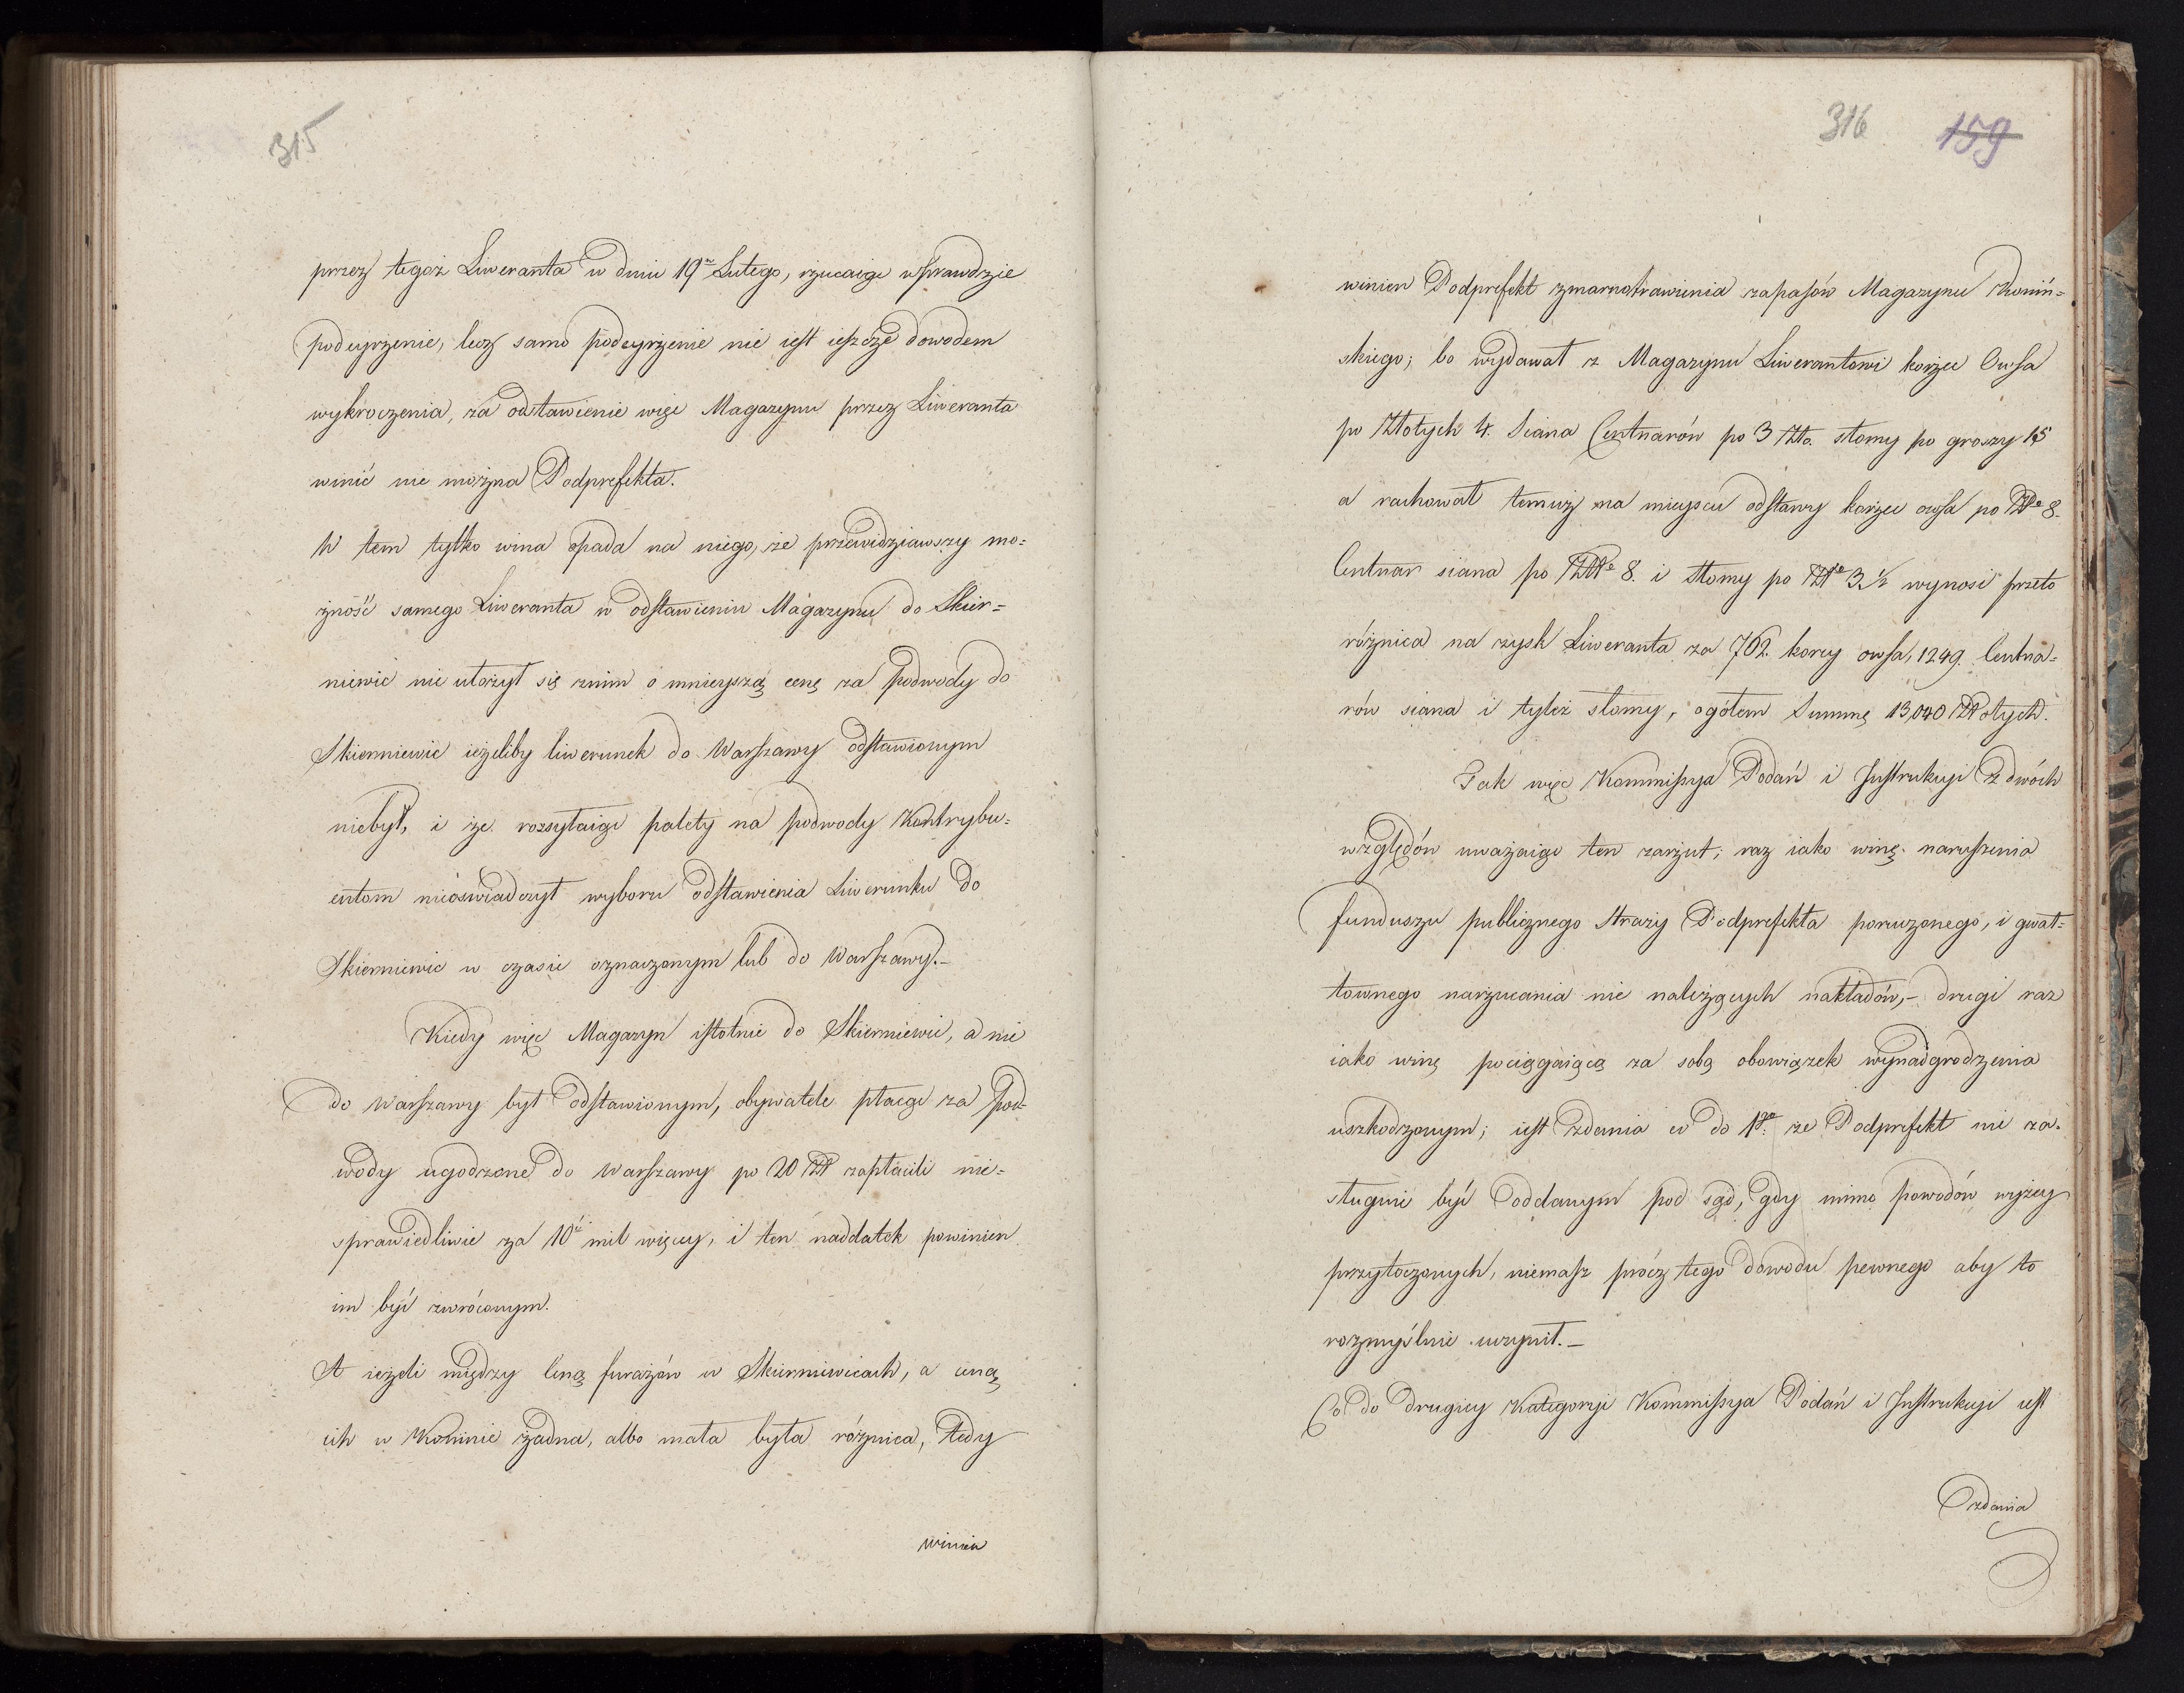 315
przez tegoż Liweranta w dniu 19ᵐ Lutego, rzucaiąc wprawdzie
podeyrzenie, lecz samo podeyrzenie nie iest ieszcze dowodem
wykroczenia, za odstawienie więc Magazynu przez Liweranta
winić nie można Podprefekta.
W tem tylko wina opada na niego, że przewidziawszy mo=
żność samego Liweranta w odstawieniu Magazynu do Skier=
niewic nie ułożył się znim o mnieyszą cenę za podwody do
Skierniewic ieżeliby liwerunek do Warszawy odstawionym
niebył, i że rozsyłaiąc palety na podwody Kontrybu=
entom nieoświadczył wyboru odstawienia Liwerunku do
Skierniewic w czasie oznaczonym lub do Warszawy.–
Kiedy więc Magazyn istotnie do Skierniewic, a nie
do Warszawy był odstawionym, obywatele płacąc za pod=
wody ugodzone do Warszawy po 20 Zł zapłacili nie=
sprawiedliwie za 10ć mil więcey, i ten naddatek powinien
im być zwróconym.
A ieżeli między Ceną furażów w Skierniewicach, a ceną
ich w Koninie żadna, albo mała była różnica, tedy
winien
316 159
winien Podprefekt zmarnotrawienia zapasów Magazynu Koniń=
skiego; bo wydawał z Magazynu Liwerantowi korzec Owsa
po Złotych 4. Siana Centnarów po 3 Zło. słomy po groszy 15
a rachował temuż na mieyscu odstawy korzec owsa po Złe 8.
Centnar siana po Złe 8. i Słomy po Złe 3.½ wynosi przeto
różnica na zysk Liweranta za 762. korcy owsa, 1249. Centna=
rów siana i tyleż słomy, ogółem Summę 13,040 Złotych.
Tak więc Kommissya Podań i Instrukcji z dwóch
względów uważaiąc ten zarzut; raz iako winę naruszenia
funduszu publicznego straży Podprefekta poruczonego, i gwał=
townego narzucania nie należących nakładów,– drugi raz
iako winę pociągaiącą za sobą obowiązek wynadgrodzenia
uszkodzonym; iest zdania co do 1go że Podprefekt nie za=
sługuie być oddanym pod sąd, gdy mimo powodów wyżey
przytoczonych, niemasz prócz tego dowodu pewnego aby to
rozmyślnie uczynił.–
Co do drugiey Kategoryi Kommissya Podań i Instrukcji iest
zdania